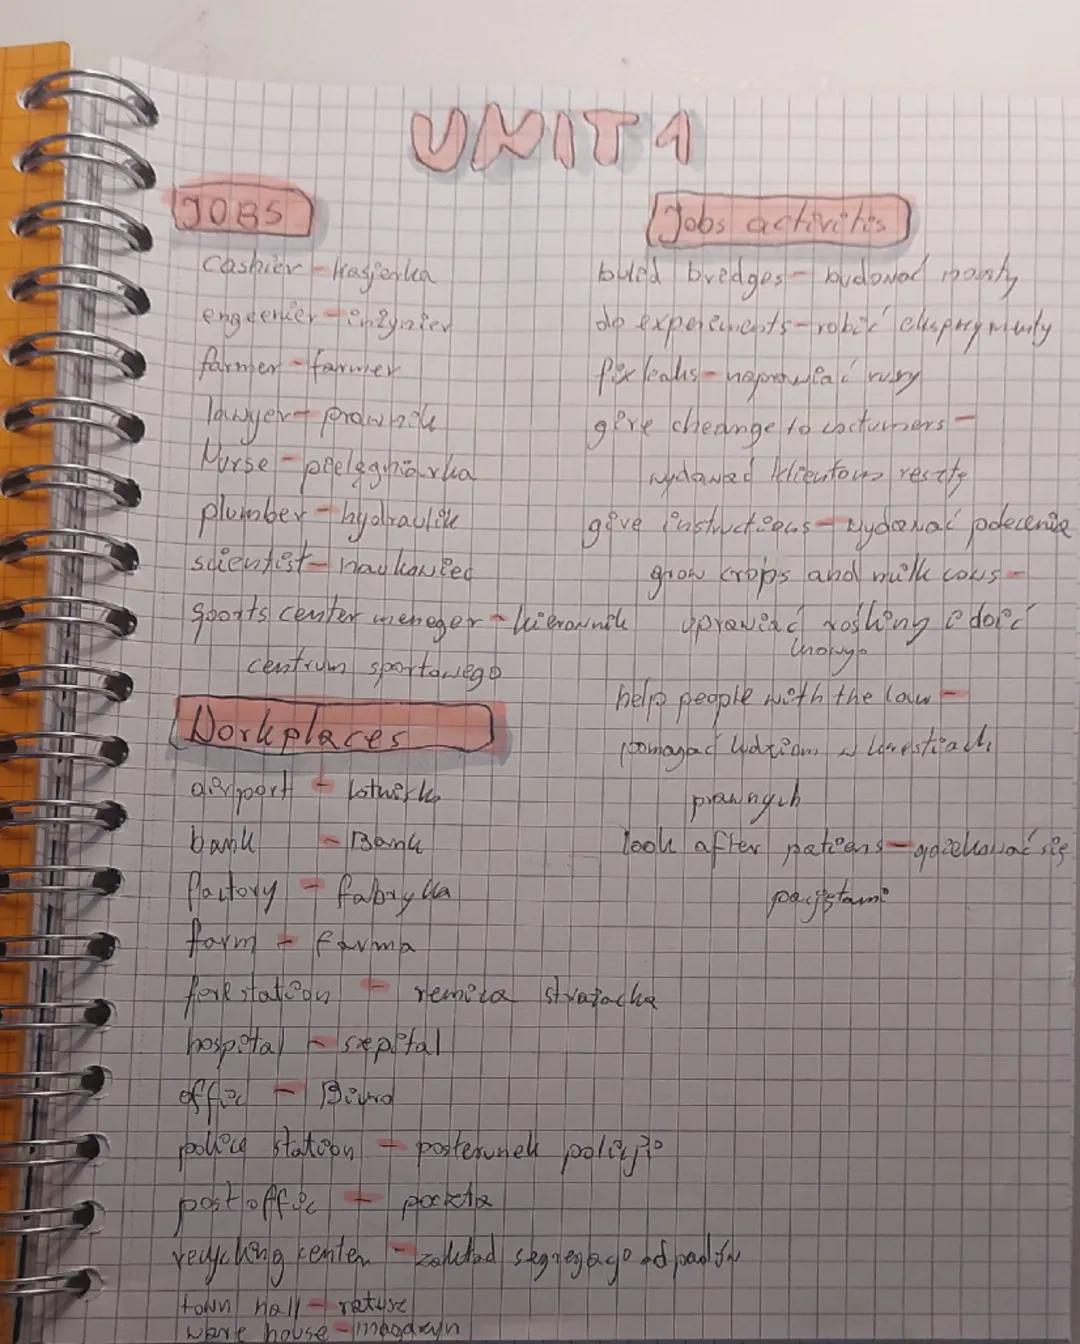 UNIT 1
JOBS
cashier - kasjerka
engeenier - inżynier
farmer - farmer
lawyer - prawnik
Nurse - pielęgniarka
plumber - hydraulik
scientist - naukowiec
sports center meneger - kierownik
centrum sportowego
Workplaces
airport - lotnisko
bank - Bank
factory - fabryka
farm - farma
station - remiza strażacka
hospital - szpital
offic - Biuro
police station - posterunek policji
post offic - poczta
recycling center - zakład segregacji odpadów
town hall - ratusz
ware house - magazyn
Jobs activities
bulid bredges - budować mosty
do experiments - robić eksprymenty
fix leaks - naprawiać rury
give cheange to costumers -
wydawać klientom resztę
give instructions - wydawać polecenia
grow crops and milk cows -
uprawiać rośliny i doić
krowy
help people with the law -
pomagać ludziom w kwestiach
prawnych
look after patiens - opiekować się
pacjętami